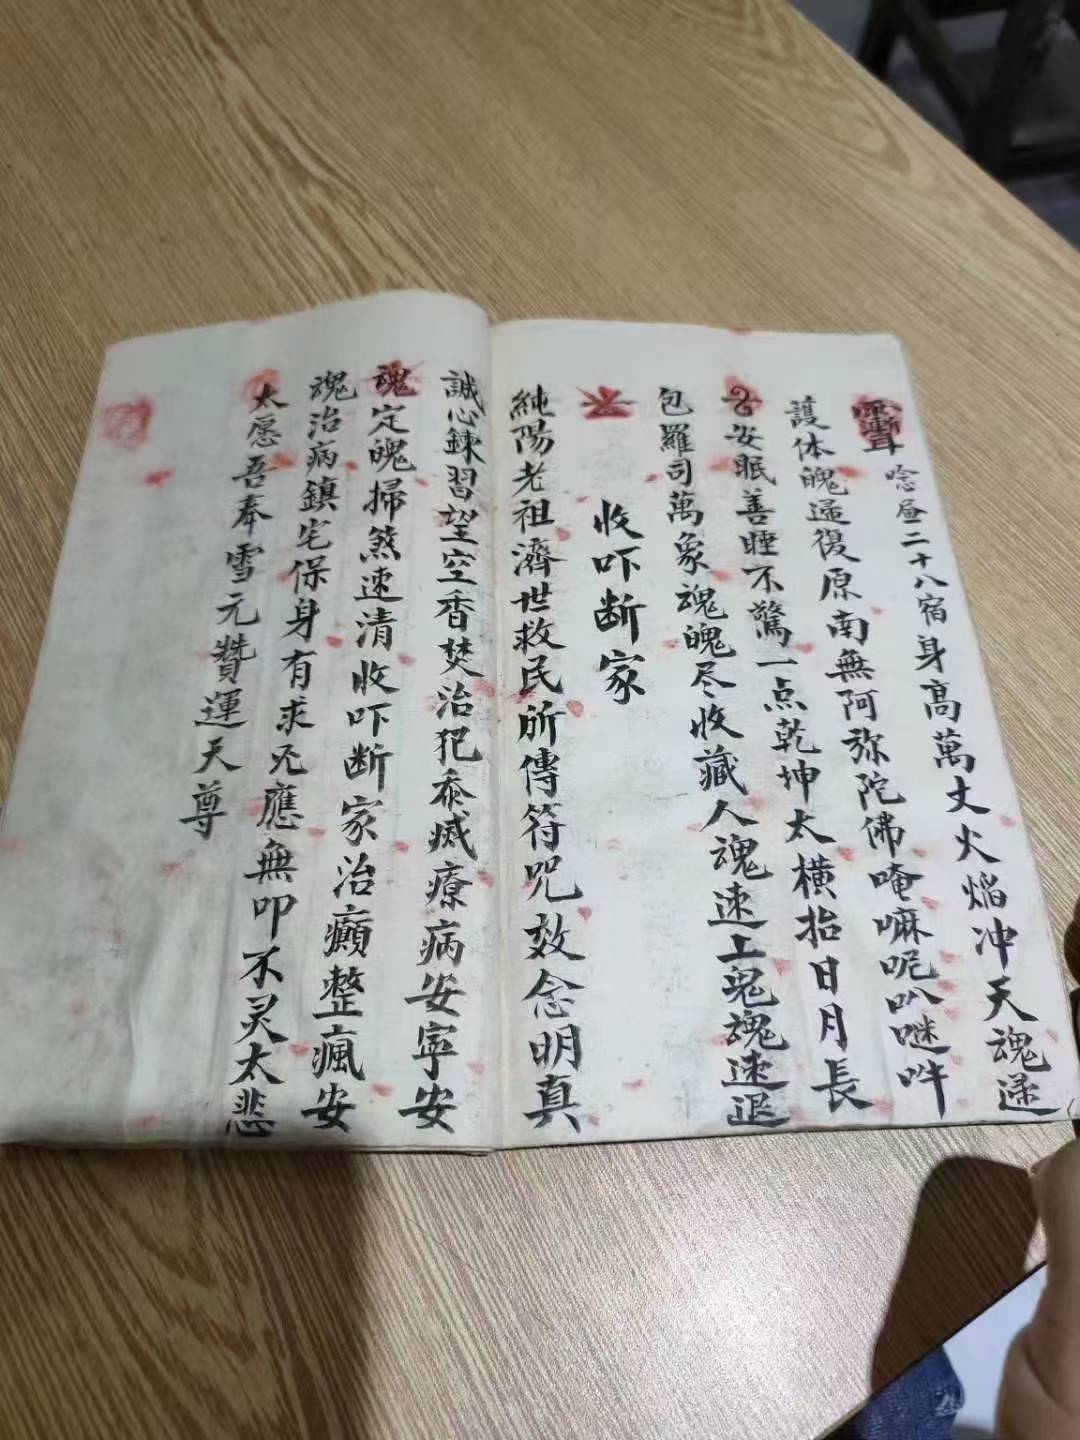 唸昼二十八宿身高萬丈火焰冲天魂遥
護体魄遥復原南無阿弥陀佛唵嘛呢叭𠺗吽
安眠善睡不驚一点乾坤太横抬日月長
包羅司萬象魂魄尽收藏人魂速上鬼魂速退
收吓断家
純陽老祖濟世救民所傳符咒效念明真
誠心鍊習望空香焚治犯忝烕療病安寧安
魂定魄掃煞速清收吓断家治癲整瘋安
魂治病鎮宅保身有求旡應無叩不灵太悲
太愿吾奉雪元贊運天尊